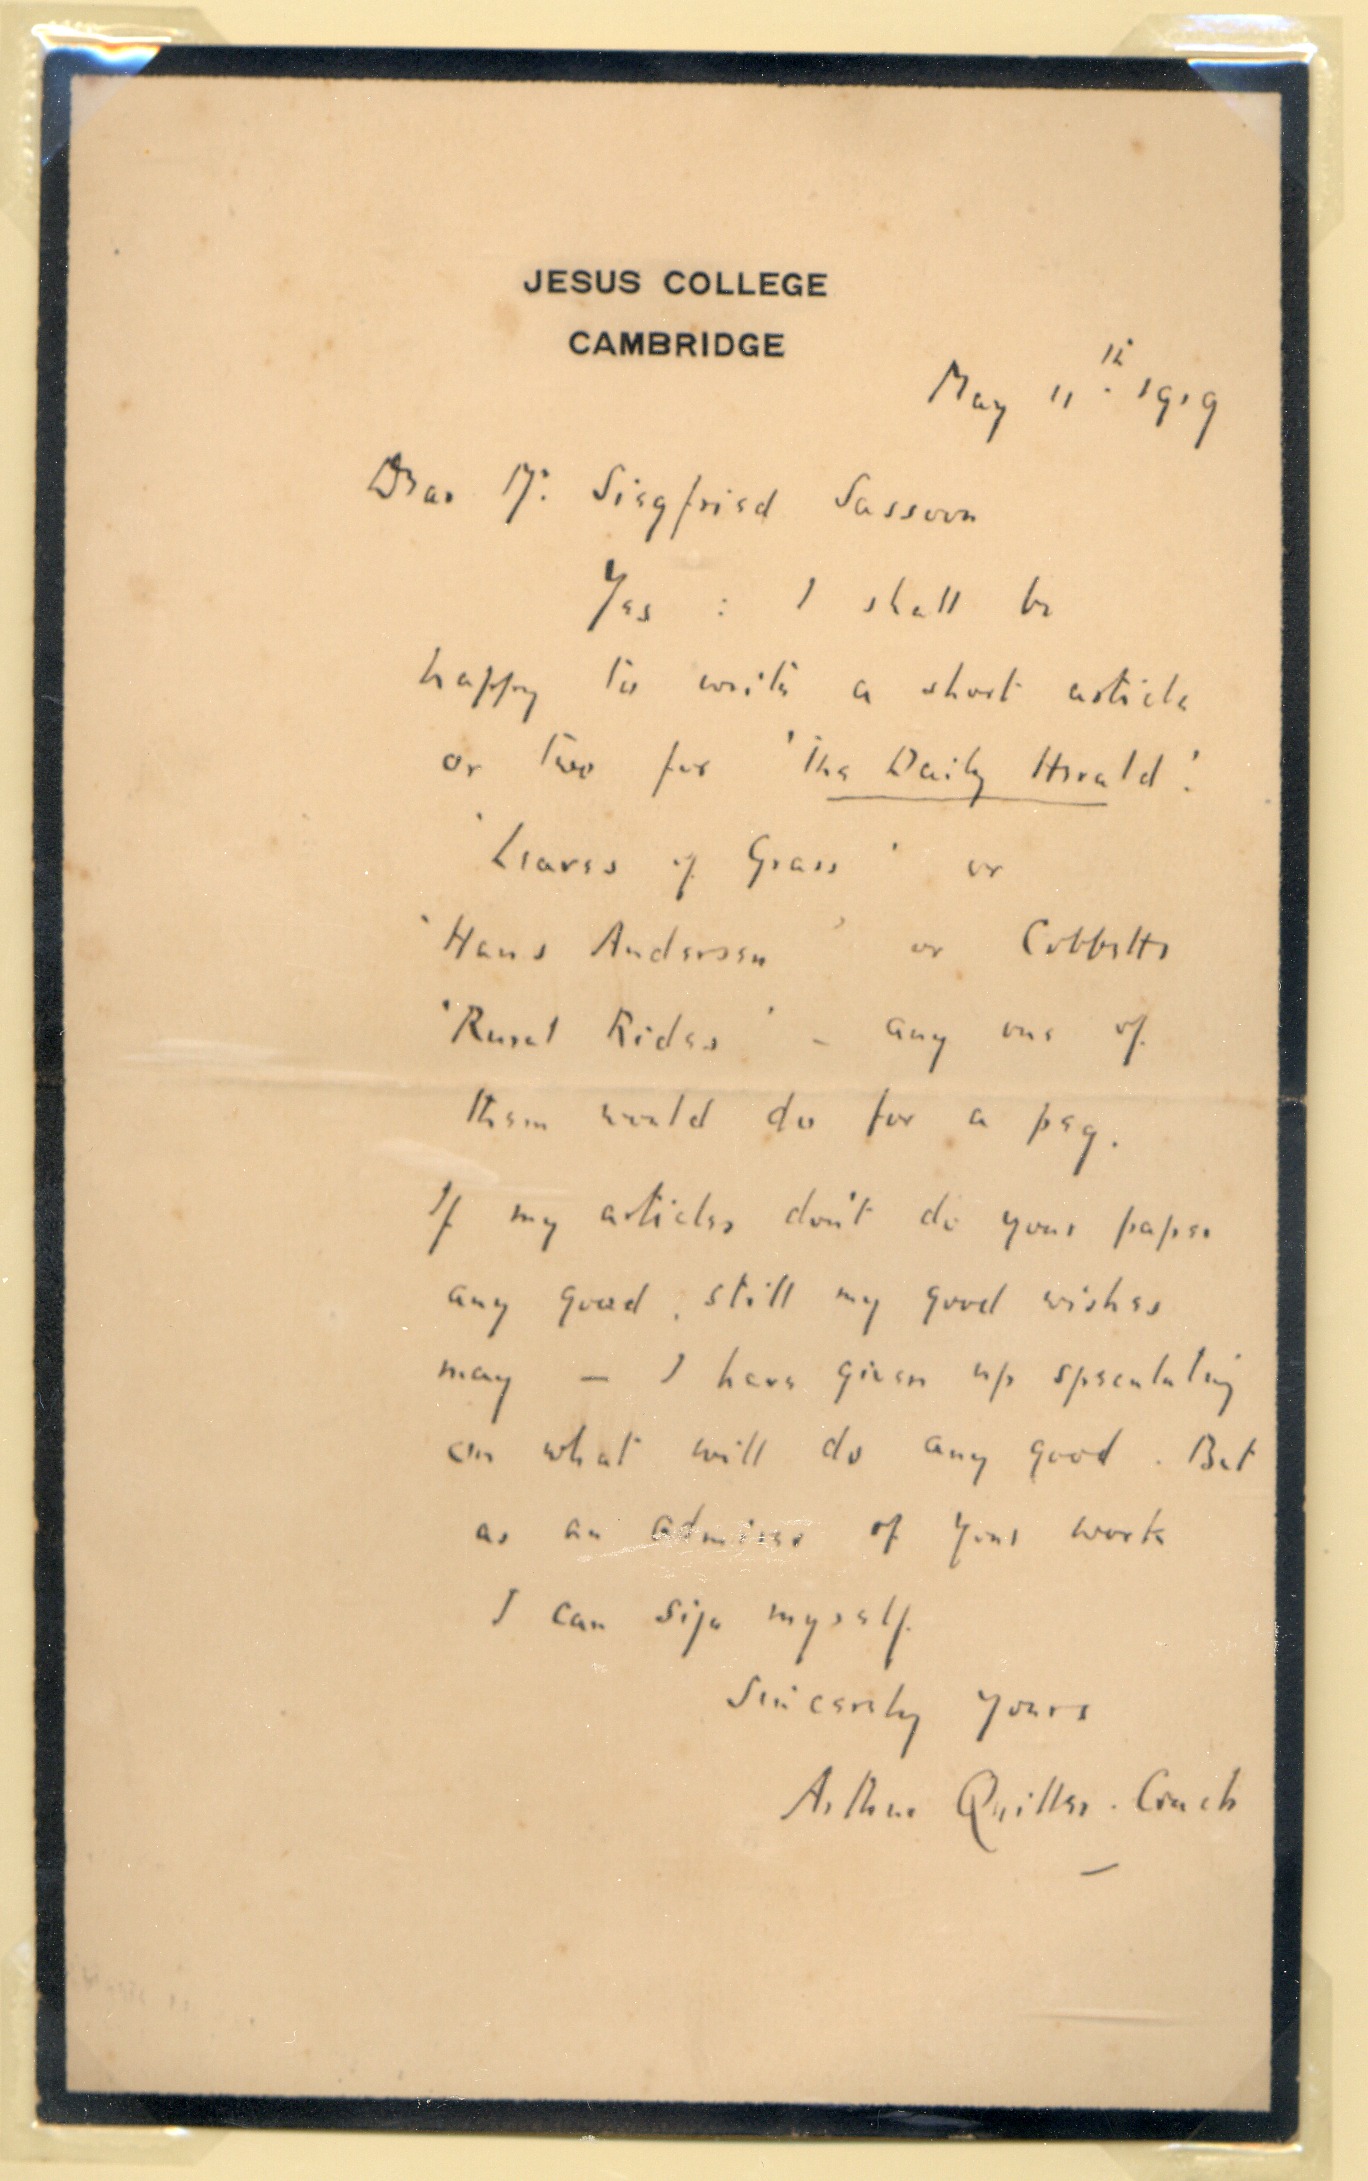 JESUS COLLEGE
CAMBRIDGE
May 11th. 1919
Dear Mr. Siegfried Sassoon
Yes : I shall be
happy to write a short article
or two for 'The Daily Herald'.
'Leaves of Grass' or
'Hans Andersen' or Cobbett's
'Rural Rides' - any one of
them would do for a peg.
If my articles don't do your paper
any good, still my good wishes
may — I have given up speculating
on what will do any good. But
as an admirer of your work
I can sign myself
Sincerely yours
Arthur Quiller-Couch